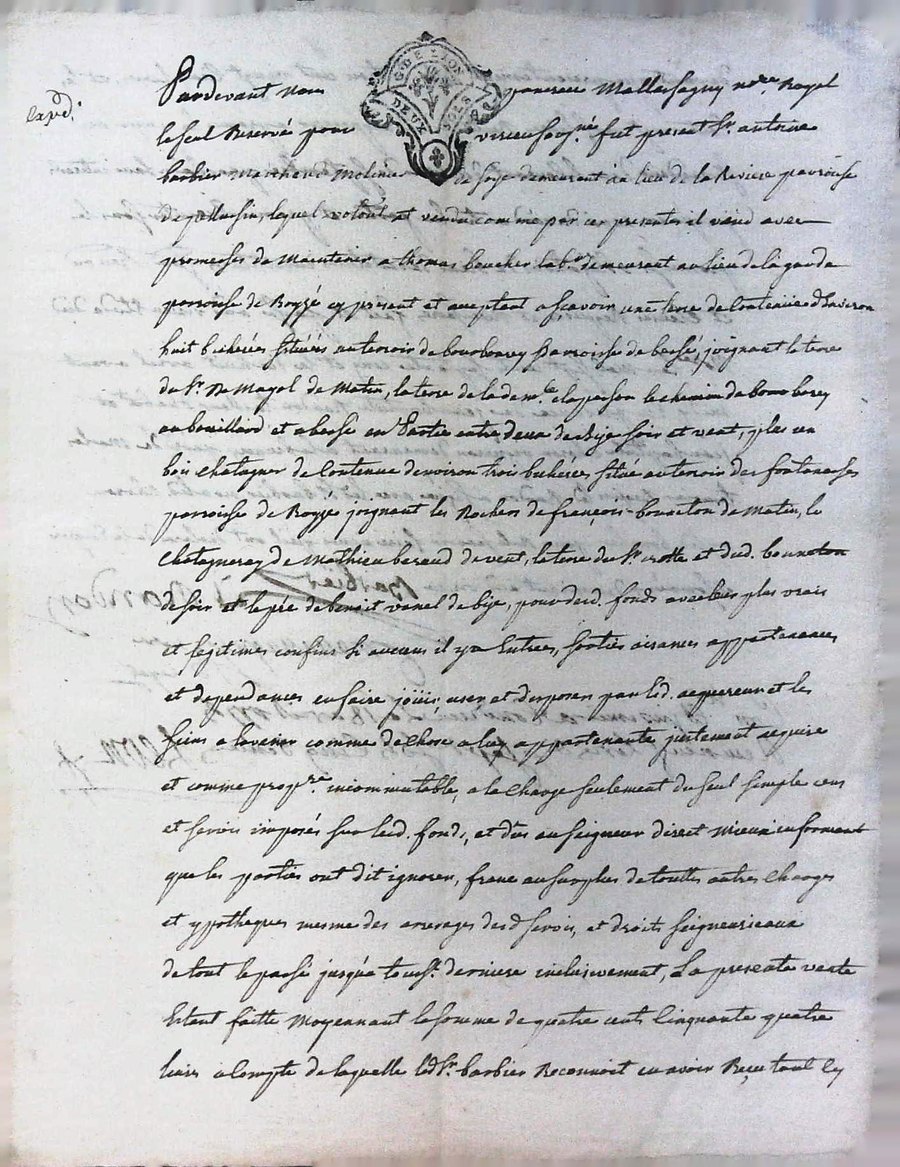 G.DE LYON
DEUX SOLS
Pardevant Nous Royal
le seul Reservé pour fut present Sr. antoine
barbier Marchand Molinier de soye demeurant au lieu de la Riviere parroisse
de lequel volont. at vendu comme par ces presentes il vend avec
promesses de Maintenir a thomas boucher lab.r demeurant au lieu de la garde
parroisse de cy present et aceptant ascavoir une terre de contenue d'Environ
huit bicherées situées au terroir de bourbarey Parroisse de bessé, joignant la terre
du Sr. Du Mayol de Matin, la terre de la dem.lle le chemin de bourbarey
au bouillard et a bessé en Partie entre deux de bize soir et vent, plus un
bois chatagner de Contenue denviron trois bicherées situé au terroir des fontanesses
parroisse de joignant les Rochers de françois bonneton de Matin, le
Chatagneray de Mathieu beraud de vent, la terre du Sr. crotte et dud. bonneton
de soir et le pré de benoit vanel de bize, pour desd. fonds avec les plus vrais
et legitimes confins si aucuns il y a Entrées, sorties aisances appartenances
et dependances en faire joüir, user et disposer par led. acquereur et les
siens a lavenir comme de chose a luy appartenante justement acquise
et comme prop.re incommutable, a la charge seulement du seul simple cens
et servis imposés sur lesd. fonds, et dûs au seigneur direct Mieux informant
que les parties ont dit ignorer, franc au surplus de touttes autres Charges
et ypotheques mesme des arrerages desd servis, et droits seigneuriaux
de tout le passé jusqu'a touss.t derniere inclusivement, La presente vente
Estant faitte Moyennant la somme de quatre cents Cinquante quatre
livres a Compte de laquelle led Sr. barbier Reconnoit en avoir Reçu tout cy